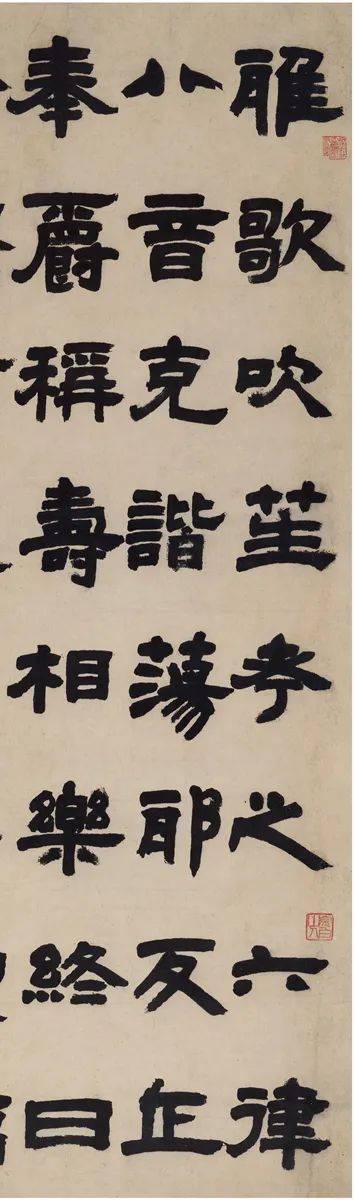 雅歌吹笙考之六律
八音克諧蕩耶反正
奉爵稱壽相樂終日